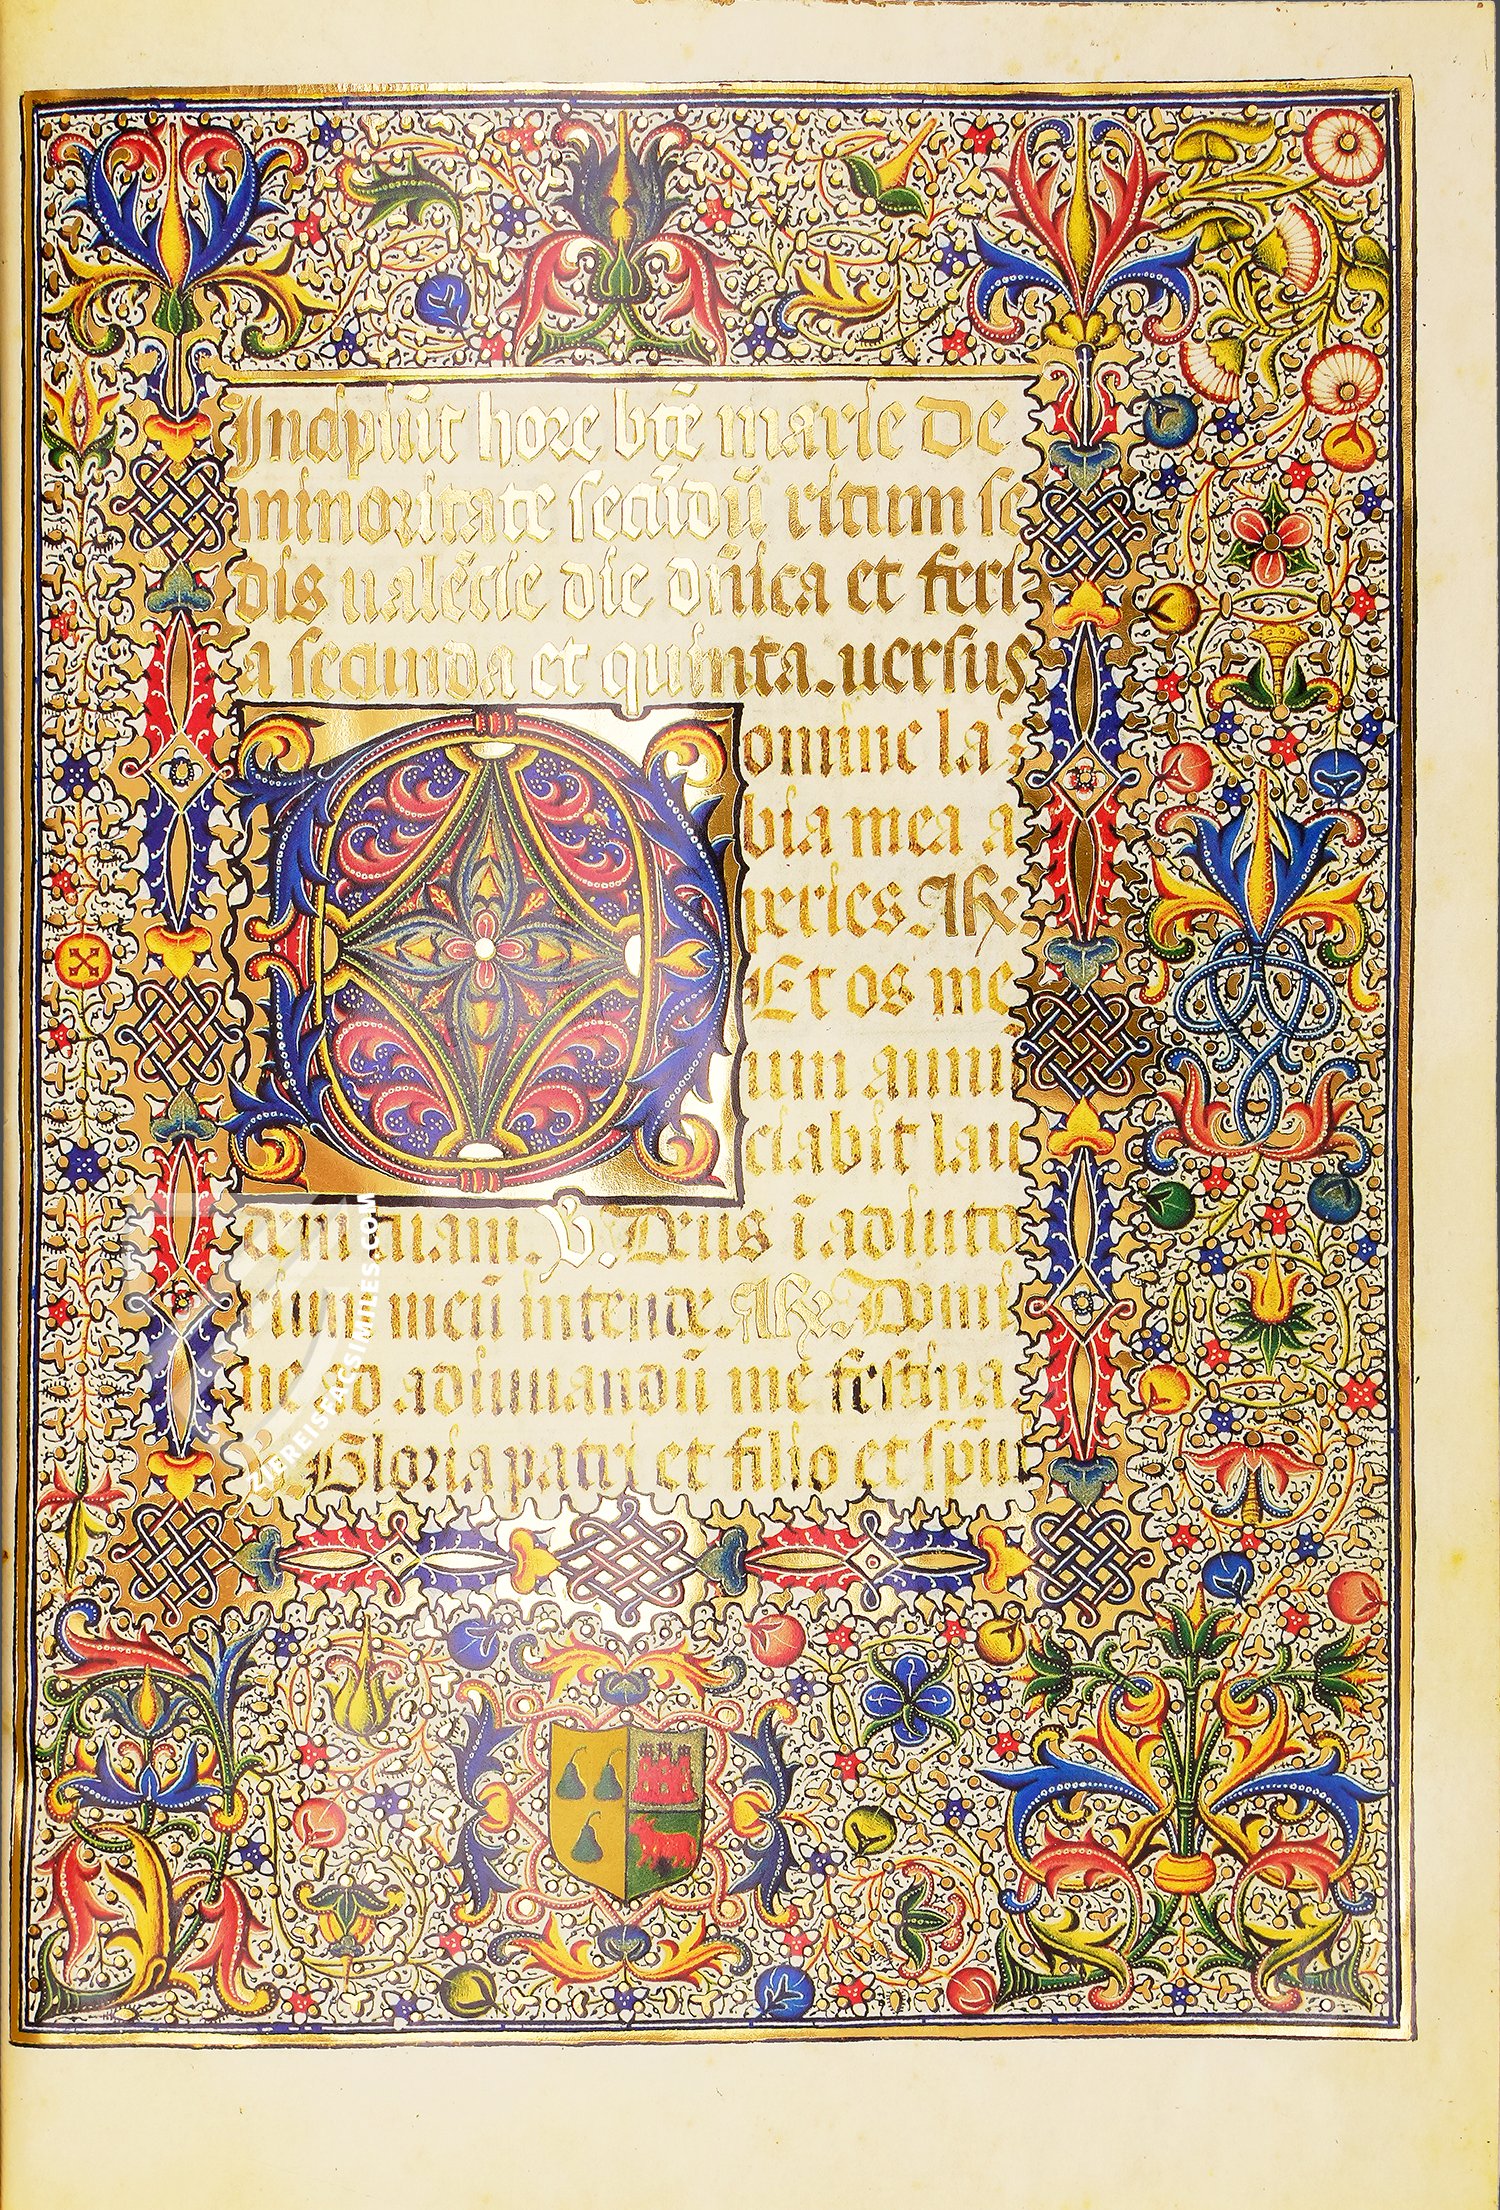 Incipiūt hore btē marie de
minoritate secūdū ritum se
dis ualēcie die dn̄ica et feri
a secunda et quinta. uersus
Domine la
bia mea a
peries. R̃x
Et os me
um annū
ciabit lau
dem tuam. V. Deus ī adiuto
rium meū intende. R̃x. Domi
ne ad adiuuandū me festina.
Gloria patri et filio et sp̄ui
ZIEREISFACSIMILES.COM